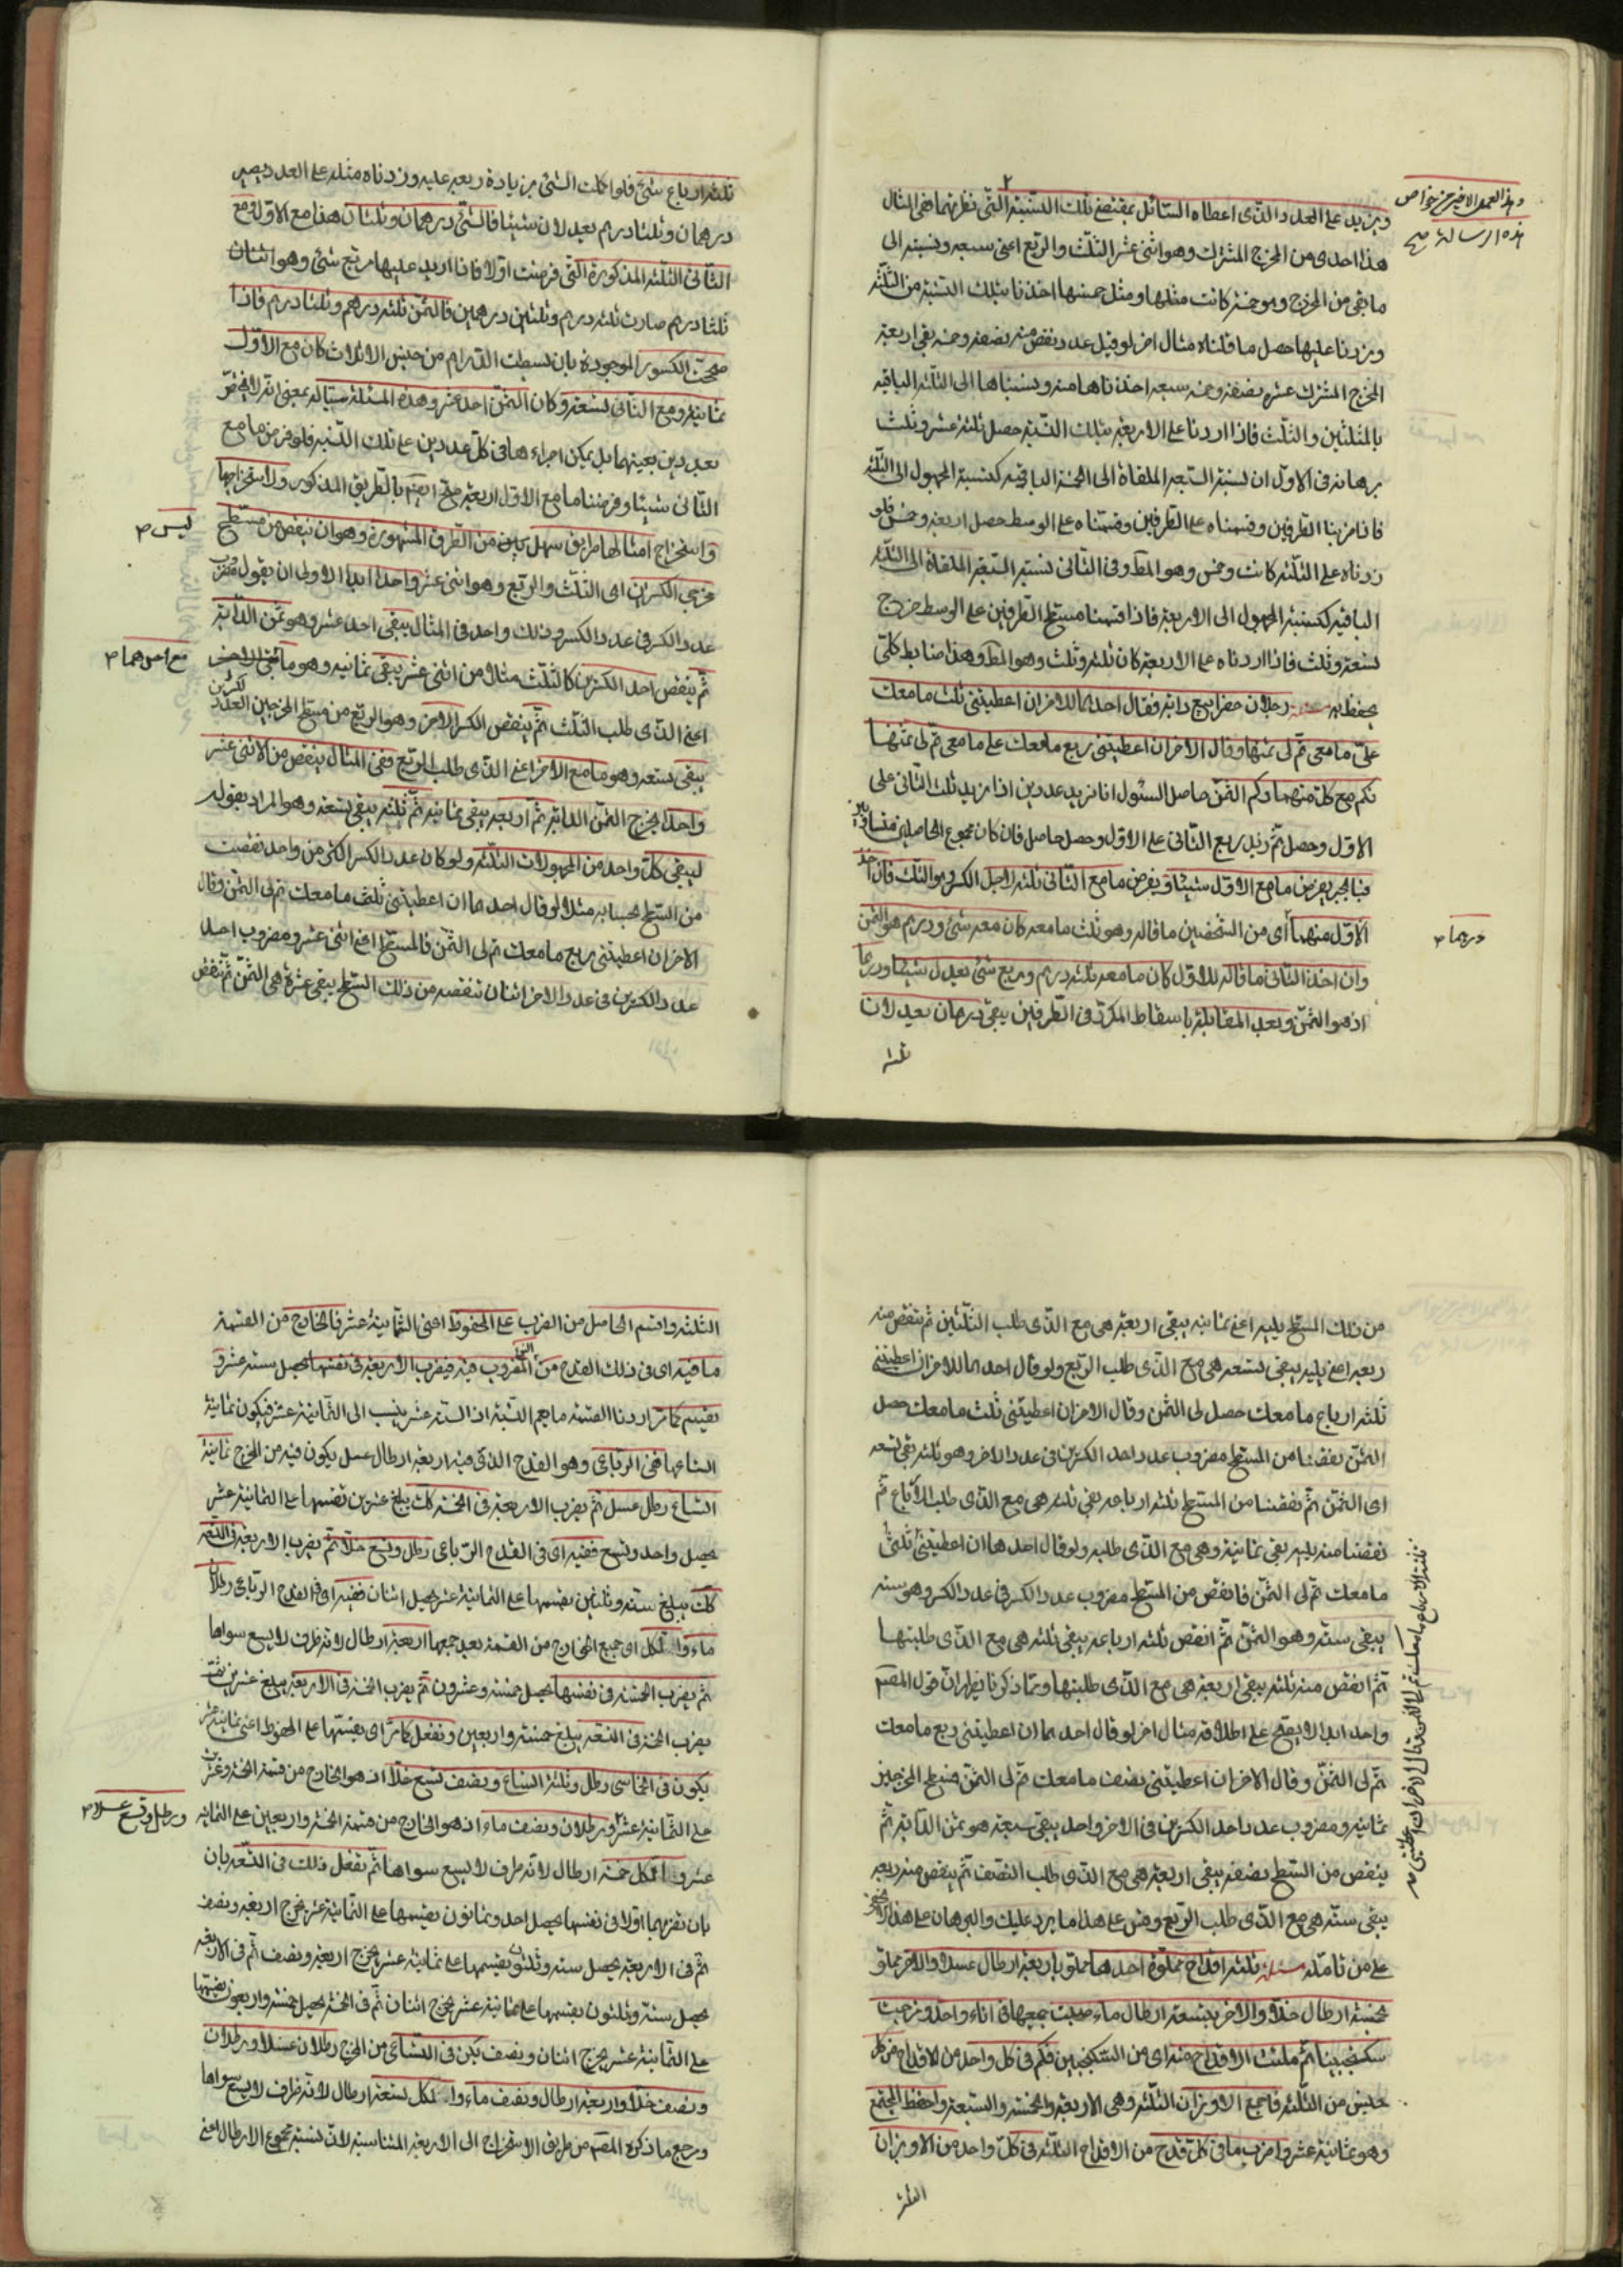 ويزيد على العدد الذى اعطاه السائل بمقتضى تلك النسبة التى نظر بها ففى المثال
هذا احدى من المخرج المشترك وهو اثنى عشر الثلث والربع اعنى سبعه ونسبته الى
ما بقى من المخرج وهو خمسة كانت مثلها ومثل خمسيها اخذنا بتلك النسبة من الثلثه
وزدنا عليها حصل ما قلناه مثال اخر لو قيل عدد نقص منه نصفه وخمسه بقى اربعة
المخرج المشترك عشره نصفه وخمسه سبعه اخذناها منه ونسبناها الى الثلثه الباقيه
بالمثلين والثلث فاذا زدنا على الاربعة بتلك النسبة حصل ثلثه عشر وثلث
برهانه فى الاول ان نسبة السبعه الملقاة الى الخمسة الباقيه كنسبة المجهول الى الثلثه
فاذا ضربنا الطرفين وقسمناه على الوسط حصل اربعة وخمس فلو
زدناه على الثلثه كانت وخمس وهو المط وفى الثانى نسبة السبعه الملقاة الى الثلثه
الباقيه كنسبة المجهول الى الاربعة فاذا قسمنا مسطح الطرفين على الوسط خرج
تسعة وثلث فاذا زدناه على الاربعة كان ثلثه وثلث وهو المط وهذا ضابط كلى
يحفظ به مسئله رجلان حضرا بيع دابة فقال احدهما للاخر ان اعطيتنى ثلث ما معك
على ما معى تم لى ثمنها وقال الاخر ان اعطيتنى ربع ما معك على ما معى تم لى ثمنها
فكم مع كل منهما وكم الثمن حاصل السئول انا نريد عددين اذا زيد ثلث الثانى على
الاول وحصل ثم زيد ربع الثانى على الاول وحصل حاصل فان كان مجموع الحاصلين متساويين
فبالجبر يفرض ما مع الاول شيئا ويفرض ما مع الثانى ثلثه لاجل الكسر وهو الثلث فان اخذ
الاول منهما اى من الشخصين ما قاله وهو ثلث ما معه كان معه شئ ودرهم هو الثمن
وان اخذ الثانى ما قاله للاول كان ما معه ثلثه درهم وربع شئ يعدل شيئا ودرهما
اذ هو الثمن وبعد المقابلة باسقاط المكرر فى الطرفين يبقى درهمان يعدلان
ثلثه
وهذا العمل الاخير من خواص
هذه الرسالة صح
درهما
ثلثه ارباع شئ فلو اكملت الشئ بزيادة ربعه عليه وزدناه مثله على العدد يصير
درهمان وثلثا درهم يعدلان شيئا فالشئ درهمان وثلثان هذا مع الاول ومع
الثانى الثلثه المذكورة التى فرضت اولا فاذا زيد عليها ربع شئ وهو اثنان
ثلثا درهم صارت ثلثه درهم وثلثين درهمين فالثمن ثلثه درهم وثلثا درهم فاذا
صححت الكسور الموجودة بان بسطت الدراهم من جنس الاثلاث كان مع الاول
ثمانية ومع الثانى تسعة وكان الثمن احد عشر وهذه المسئلة سيالة بمعنى انه لا يختص
بعددين بعينهما بل يمكن اجراءها فى كل عددين على تلك النسبه فلو فرض ما مع
الثانى شيئا وفرضنا ما مع الاول اربعة صح ايضا بالطريق المذكور ولاستخراجها
واستخراج امثالها طريق سهل ليس من الطرق المشهورة وهو ان ينقص من مسطح
مخرجى الكسرين اى الثلث والربع وهو اثنى عشر واحدا ابدا الاولى ان يقول مضروب
عدد الكسر فى عدد الكسر وذلك واحد فى المثال يبقى احد عشر وهو ثمن الدابة
ثم ينقص احد الكسرين كالثلث مثلا من اثنى عشر يبقى ثمانيه وهو ما
اعنى الذى طلب الثلث ثم ينقص الكسر الاخر وهو الربع من مسطح المخرجين العدد
يبقى تسعه وهو ما مع الاخر اعنى الذى طلب الربع ففى المثال ينقص من الاثنى عشر
واحد ليخرج الثمن الدابة ثم اربعه يبقى ثمانيه ثم ثلثه يبقى تسعة وهو المراد بقوله
ليبقى كل واحد من المجهولات الثلثه ولو كان عدد الكسر اكثر من واحد نقصت
من السطح بحسابه مثلا لو قال احدهما ان اعطيتنى ثلث ما معك تم لى الثمن وقال
الاخر ان اعطيتنى ربع ما معك تم لى الثمن فالمسطح اعنى اثنى عشر ومضروب احد
عدد الكسرين فى عدد الاخر اثنان ننقصه من ذلك السطح يبقى عشرة هى الثمن ثم ننقص
ليس
مع احدهما
من ذلك السطح ثلثيه اعنى ثمانيه يبقى اربعة هى مع الذى طلب الثلثين ثم ننقص منه
ربعه اعنى ثلثه يبقى تسعه هى مع الذى طلب الربع ولو قال احدهما للاخر ان اعطيتنى
ثلثه ارباع ما معك حصل لى الثمن وقال الاخر ان اعطيتنى ثلث ما معك حصل
الثمن نقصنا من المسطح مضروب عدد احد الكسرين فى عدد الاخر وهو ثلثه بقى تسعه
اى الثمن ثم نقصنا من المسطح ثلثه ارباعه بقى ثلثه هى مع الذى طلب الارباع ثم
نقصنا منه ثلثه بقى ثمانية وهى مع الذى طلبه ولو قال احدهما ان اعطيتنى ثلثى
ما معك تم لى الثمن فانقص من المسطح مضروب عدد الكسر فى عدد الكسر وهو سته
يبقى سته وهو الثمن ثم انقص ثلثه ارباعه يبقى ثلثه هى مع الذى طلبها
ثم انقص منه ثلثيه يبقى اربعة هى مع الذى طلبها ومما ذكرنا يظهر ان قول المصنف
واحد ابدا لا يصح على اطلاقه مثال اخر لو قال احدهما ان اعطيتنى ربع ما معك
تم لى الثمن وقال الاخر ان اعطيتنى نصف ما معك تم لى الثمن فسطح المخرجين
ثمانية ومضروب عدد احد الكسرين فى الاخر واحد يبقى سبعة هو ثمن الدابة ثم
ينقص من السطح نصفه يبقى اربعة هى مع الذى طلب النصف ثم ينقص منه ربعه
يبقى سته هى مع الذى طلب الربع وقس على هذا ما يرد عليك والبرهان على هذا
على من تامله مسئله ثلثه اقداح مملوة احدها مملو باربعة ارطال عسلا والاخر مملو
بخمسة ارطال خلا والاخر بتسعة ارطال ماء صبت جميعها فى اناء واحد ومزجت
سكنجبينا ثم ملئت الاقداح منه اى من السكنجبين فكم فى كل واحد من الاقداح من كل
جنس من الثلثه فاجمع الاوزان الثلثه وهى الاربعة والخمسة والتسعة واحفظ المجتمع
وهو ثمانية عشر واضرب ما فى كل قدح من الاقداح الثلثه فى كل واحد من الاوزان
الثلثه
ثلثه الارباع ما معك تم لى الثمن وقال الاخر ان اعطيتنى
الثلثه واقسم الحاصل من الضرب على المحفوظ اعنى الثمانية عشر فالخارج من القسمة
ما فيه اى فى ذلك القدح من المضروب فيه فيضرب الاربعة فى نفسها يحصل سته عشر و
يقسم كما مر اردنا القسمة ما يعم النسبة اذ السته عشر ينسب الى الثمانية عشر فيكون ثمانية
اتساعها ففى الرباعى وهو القدح الذى فيه اربعة ارطال عسل يكون فيه من المخرج ثمانية
اتساع رطل عسل ثم يضرب الاربعة فى الخمسة كك يبلغ عشرين نقسمها على الثمانية عشر
يحصل واحد وتسع ففيه اى فى القدح الرباعى رطل وتسع خلا ثم يضرب الاربعة فى التسعه
كك يبلغ سته وثلثين نقسمها على الثمانية عشر يحصل اثنان ففيه اى فى القدح الرباعى رطلان
ماء والكل اى جميع الخارج من القسمة بعد جمعها اربعة ارطال لانه ظرف لا يسع سواها
ثم يضرب الخمسة فى نفسها يحصل خمسة وعشرون ثم يضرب الخمسة فى الاربعة يبلغ عشرين ثم
يضرب الخمسة فى التسعه يبلغ خمسة واربعين ونفعل كما مر اى نقسمها على المحفوظ اعنى ثمانية عشر
يكون فى الخماسى رطل وثلثه اتساع ونصف تسع خلا اذ هو الخارج من قسمة الخمسة وعشرين
على الثمانية عشر ورطلان ونصف ماء اذ هو الخارج من قسمة الخمسة واربعين على الثمانيه
عشر والكل خمسة ارطال لانه ظرف لا يسع سواها ثم نفعل ذلك فى التسعه بان
بان نضربها اولا فى نفسها يحصل احد وثمانون نقسمها على الثمانية عشر يخرج اربعة ونصف
ثم فى الاربعة يحصل ستة وثلثون نقسمها على ثمانية عشر يخرج اربعة ونصف ثم فى الاربعة
يحصل ستة وثلثون نقسمها على ثمانية عشر يخرج اثنان ثم فى الخمسة يحصل خمسة واربعون نقسمها
على الثمانية عشر يخرج اثنان ونصف يكن فى التساعى من المخرج رطلان عسلا ورطلان
ونصف خلا واربعة ارطال ونصف ماء والكل تسعة ارطال لانه ظرف لا يسع سواها
ومرجع ما ذكره المصنف من طريق الاستخراج الى الاربعة المتناسبة لان نسبة مجموع الارطال اعنى
ورطل وتسع عسلا